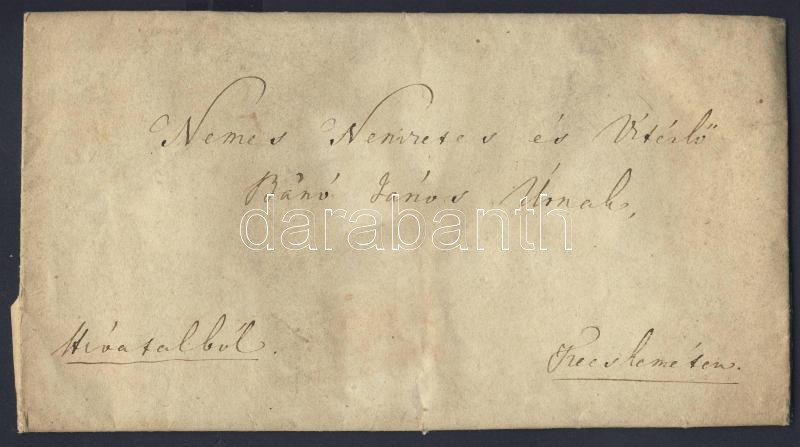 Nemes Nemzetes és Vitézlő
Bánó János Úrnak,
darabanth
Hivatalból.
Kecskeméten.